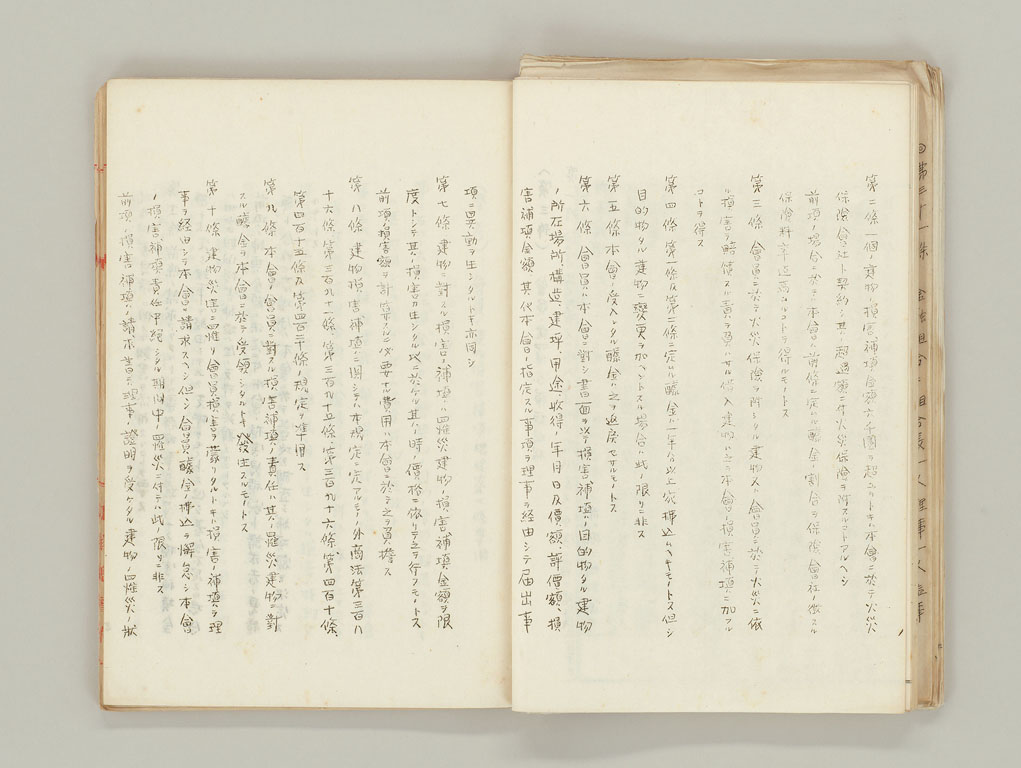 第二條 一個ノ建物ノ損害補填金額六千圓ヲ超ユルトキハ本會ニ於テ火災
保險會社ト契約シ其ノ超過額ニ付火災保險ヲ附スルコトアルヘシ
前項ノ場合ニ於テ本會ハ前條ニ定ムル醵金ノ割合ヲ保險會社ノ徴スル
保險料率迄高ムルコトヲ得ルモノトス
第三條 會員ニ於テ火災保險ヲ附シタル建物又ハ會員ニ於テ火災ニ依
ル損害ヲ賠償スル責ヲ負ハサル借入建物ハ之ヲ本會ノ損害補填ニ加フル
コトヲ得ス
第四條 第一條及第二條ニ定ムル醵金ハ一年分以上宛拂込ムヘキモノトス但シ
目的物タル建物ニ變更ヲ加ヘントスル場合ハ此ノ限リニ非ス
第五條 本會ノ受入レタル醵金ハ之ヲ返戻セサルモノトス
第六條 會員ハ本會ニ對シ書面ヲ以テ損害補填ノ目的物タル建物
ノ所在場所構造、建坪、用途取得ノ年月日及價額、評價額、損
害補填金額其他本會ノ指定スル事項ヲ理事ヲ経由シテ届出事
項ニ異動ヲ生シタルトキ亦同シ
第七條 建物ニ對スル損害ノ補填ハ罹災建物ノ損害補填金額ヲ限
度トシテ其ノ損害カ生シタル地ニ於ケル其ノ時ノ價格ニ依リテ之ヲ行フモノトス
前項ノ損害額ヲ計算スルニ必要ナル費用ハ本會ニ於テ之ヲ負擔ス
第八條 建物損害補填ニ関シテハ本規定ニ定アルモノノ外商法第三百八
十六條、第三百九十一條、第三百九十五條、第三百九十六條、第四百十條、
第四百十五條及第四百二十條ノ規定ヲ準用ス
第九條 本會ノ會員ニ對スル損害補填ノ責任ハ其ノ罹災建物ニ對
スル醵金ヲ本會ニ於テ受領シタルトキ發生スルモノトス
第十條 建物災害ニ罹リ會員損害ヲ蒙リタルトキハ損害ノ補填ヲ理
事ヲ経由シテ本會ニ請求スヘシ但シ會員醵金ノ拂込ヲ懈怠シ本會
ノ損害補填責任中絶シタル期間中ノ罹災ニ付テハ此ノ限リニ非ス
前項ノ損害補填ノ請求書ニハ理事ノ證明ヲ受ケタル建物ノ罹災ノ状